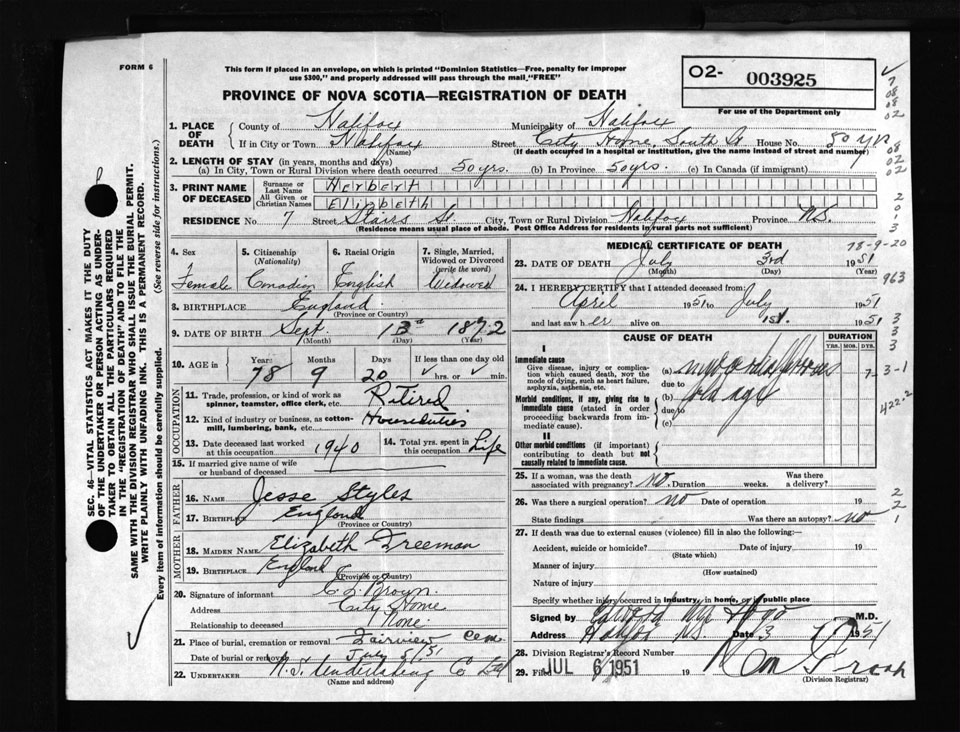 FORM 6
This form if placed in an envelope, on which is printed "Dominion Statistics—Free, penalty for improper
use $300," and properly addressed will pass through the mail, "FREE"
PROVINCE OF NOVA SCOTIA—REGISTRATION OF DEATH
O2- 003925
For use of the Department only
1. PLACE OF DEATH { County of Halifax Municipality of Halifax
If in City or Town Halifax (Name) Street City Home, South St House No. 50 yrs
(If death occurred in a hospital or institution, give the name instead of street and number)
2. LENGTH OF STAY (in years, months and days)
(a) In City, Town or Rural Division where death occurred 50 yrs. (b) In Province 50 yrs. (c) In Canada (if immigrant)
3. PRINT NAME OF DECEASED { Surname or Last Name Herbert
All Given or Christian Names Elizbeth
RESIDENCE No. 7 Street Stairs St. City, Town or Rural Division Halifax Province N.S.
(Residence means usual place of abode. Post Office Address for residents in rural parts not sufficient)
4. Sex Female
5. Citizenship (Nationality) Canadian
6. Racial Origin English
7. Single, Married, Widowed or Divorced (write the word) Widowed
8. BIRTHPLACE England
(Province or Country)
9. DATE OF BIRTH Sept. 13th 1872
(Month) (Day) (Year)
10. AGE in { Years 78 Months 9 Days 20 If less than one day old
hrs. or min.
OCCUPATION
11. Trade, profession, or kind of work as spinner, teamster, office clerk, etc. Ritired
12. Kind of industry or business, as cotton-mill, lumbering, bank, etc. Houseduties
13. Date deceased last worked at this occupation 1940
14. Total yrs. spent in this occupation Life
15. If married give name of wife or husband of deceased
FATHER
16. Name Jesse Styles
17. Birthplace England
(Province or Country)
MOTHER
18. Maiden Name Elizabeth Freeman
19. Birthplace England
(Province or Country)
20. Signature of informant Brown
Address City Home
Relationship to deceased None.
21. Place of burial, cremation or removal Fairview Cem
Date of burial or removal July 5/51
22. UNDERTAKER N.S. Undertaking Co Ltd
(Name and address)
MEDICAL CERTIFICATE OF DEATH 78-9-20
23. DATE OF DEATH July 3rd 1951
(Month) (Day) (Year)
24. I HEREBY CERTIFY that I attended deceased from:
April 1951 to July 1951
and last saw her alive on 1st. 1951
CAUSE OF DEATH
DURATION
YRS. MOS. DYS.
I
Immediate cause
Give disease, injury or complication which caused death, not the mode of dying, such as heart failure, asphyxia, asthenia, etc.
(a)
due to
Morbid conditions, if any, giving rise to immediate cause (stated in order proceeding backwards from immediate cause).
(b) old age
due to
(c)
II
Other morbid conditions (if important) contributing to death but not causally related to immediate cause.
25. If a woman, was the death associated with pregnancy? no. Duration weeks. Was there a delivery?
26. Was there a surgical operation? no Date of operation 19
State findings Was there an autopsy? no
27. If death was due to external causes (violence) fill in also the following:—
Accident, suicide or homicide? Date of injury 19
(State which)
Manner of injury
(How sustained)
Nature of injury
Specify whether injury occurred in industry, in home, or in public place
Signed by M.D.
Address Halifax N.S. Date 3 7 1951
28. Division Registrar's Record Number
29. Filed JUL 6 1951 19
(Division Registrar)
7
08
08
02
08
02
02
2
0
1
3
963
3
3
3
3-1
422.2
2
2
1
SEC. 46—VITAL STATISTICS ACT MAKES IT THE DUTY
OF THE UNDERTAKER OR PERSON ACTING AS UNDER-
TAKER TO OBTAIN ALL THE PARTICULARS REQUIRED
IN THE "REGISTRATION OF DEATH" AND TO FILE THE
SAME WITH THE DIVISION REGISTRAR WHO SHALL ISSUE THE BURIAL PERMIT.
WRITE PLAINLY WITH UNFADING INK. THIS IS A PERMANENT RECORD.
Every item of information should be carefully supplied. (See reverse side for instructions.)